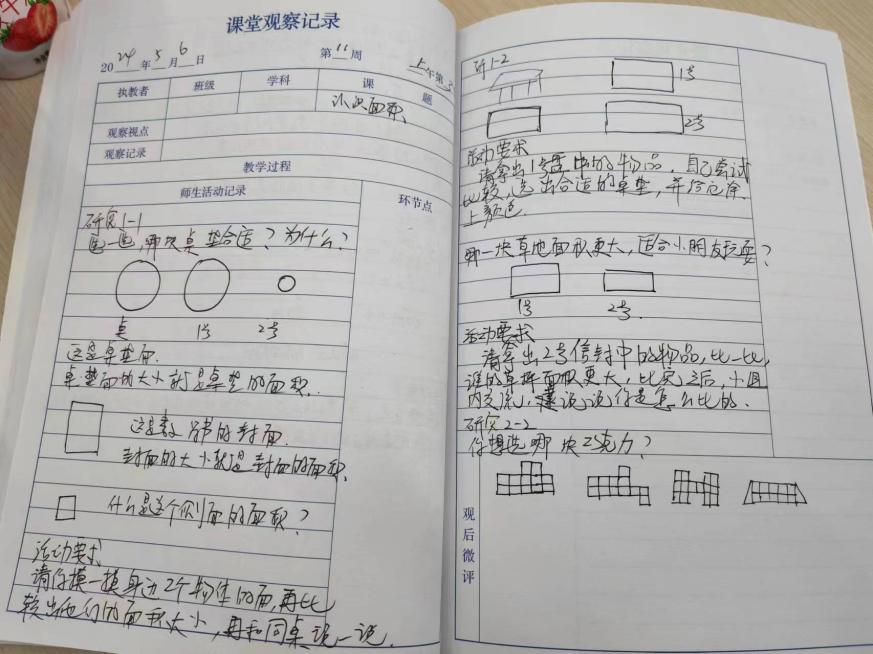 课堂观察记录
2024年5月6日 第11周 上午第3
执教者 班级 学科 课题
认识面积
观察视点
观察记录
教学过程
师生活动记录 环节点
研究1-1
选一选,哪块桌垫合适?为什么?
桌 1号 2号
这是桌垫面.
桌垫面的大小就是桌垫的面积.
这是数学书的封面.
封面的大小就是封面的面积.
什么是这个侧面的面积?
活动要求
请你摸一摸身边2个物体的面,再比
较出他们的面积大小,再和同桌说一说.
研1-2
1号
2号
活动要求
请拿出1号中的物品,自己尝试
比较,选出合适的桌垫,并给它涂
上颜色.
哪一块草地面积更大,适合小朋友玩耍?
1号 2号.
活动要求
请拿出2号信封中的物品,比一比,
谁的草坪面积更大,比完之后,小组
内交流,说说你是怎么比的.
研究2-2
你想选哪块巧克力?
观后微评